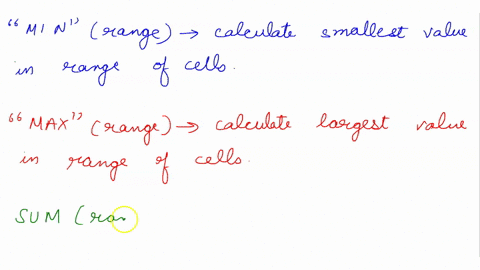 “MIN” (range) → calculate smallest value
in range of cells.
“MAX” (range) → calculate largest value
in range of cells.
SUM (ran